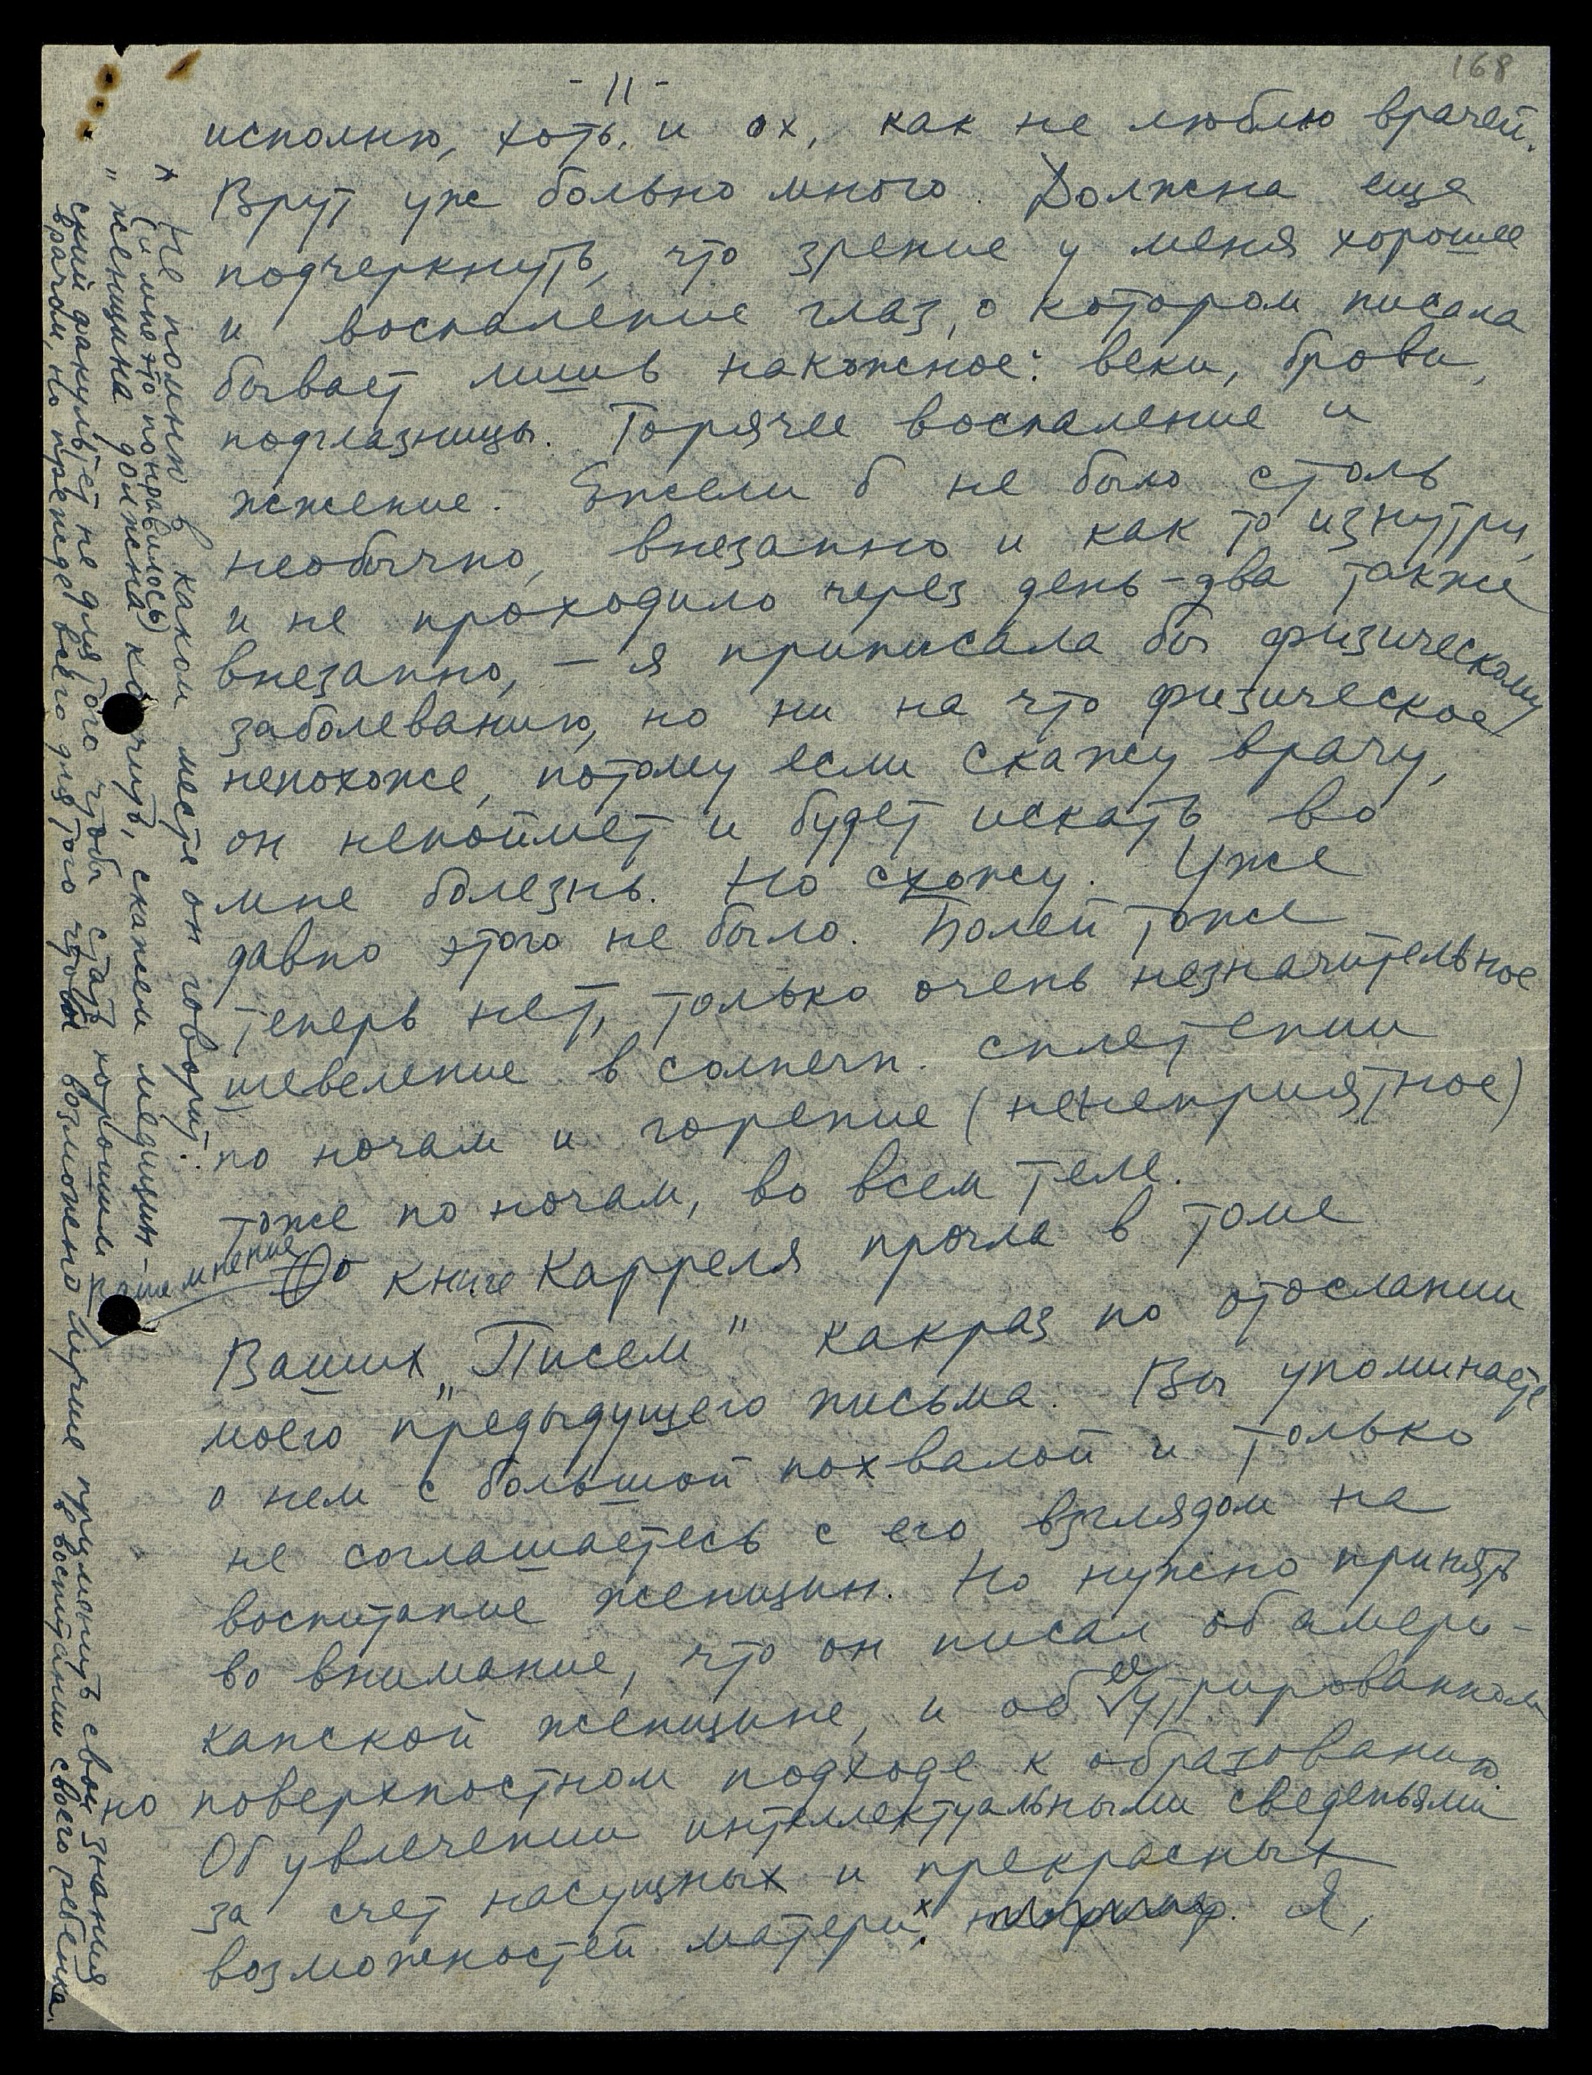 168
- 11 -
исполню, хоть и ох, как не люблю врачей.
Врут уж больно много. Должна еще
подчеркнуть, что зрение у меня хорошее
и воспаление глаз, о котором писала
бывает лишь накожное: веки, брови,
подглазницы. Горячее воспаление и
жжение. Ежели б не было столь
необычно, внезапно и как то изнутри,
и не проходило через день-два также
внезапно, – я приписала бы физическому
заболеванию, но ни на что физическое
непохоже, потому если скажу врачу,
он непоймет и будет искать во
мне болезнь. Но схожу. Уже
давно этого не было. Болей тоже
теперь нет, только очень незначительное
шевеление в солнечн. сплетении
по ночам и горение (ненеприятное)
тоже по ночам, во всем теле.
Ваше мнение
О книге Карреля прочла в томе
Ваших „Писем" какраз по отослании
моего предыдущего письма. Вы упоминаете
о нем с большой похвалой и только
не соглашаетесь с его взглядом на
воспитание женщин. Но нужно принять
во внимание, что он писал об амери-
канской женщине, и об утрированном
но поверхностном подходе к образованию.
Об увлечении интеллектуальными сведеньями
за счет насущных и прекрасных
возможностей матери.x Я,
x Не помню в каком месте он говорит:
(и мне это понравилось)
„женщина должна кончить, скажем медицин-
ский факультет не для того чтобы стать хорошим
врачом, но прежде всего для того чтобы возможно лучше применить свои знания
в воспитании своего ребенка.